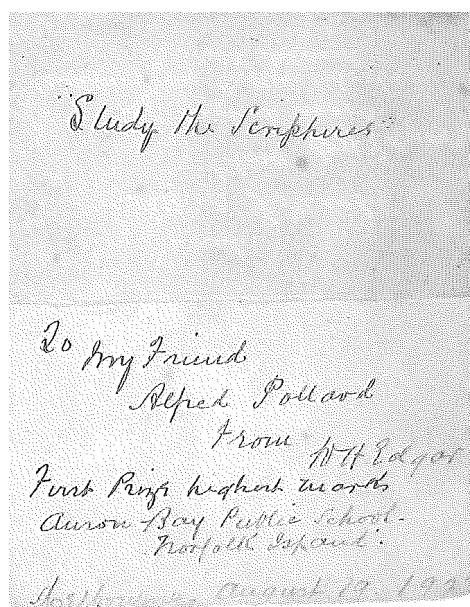 "Study the Scriptures"
To
My Friend
Alfred Pollard
From W H Edgar
First Prize highest marks
Anson Bay Public School.
Norfolk Island.
August 19. 192